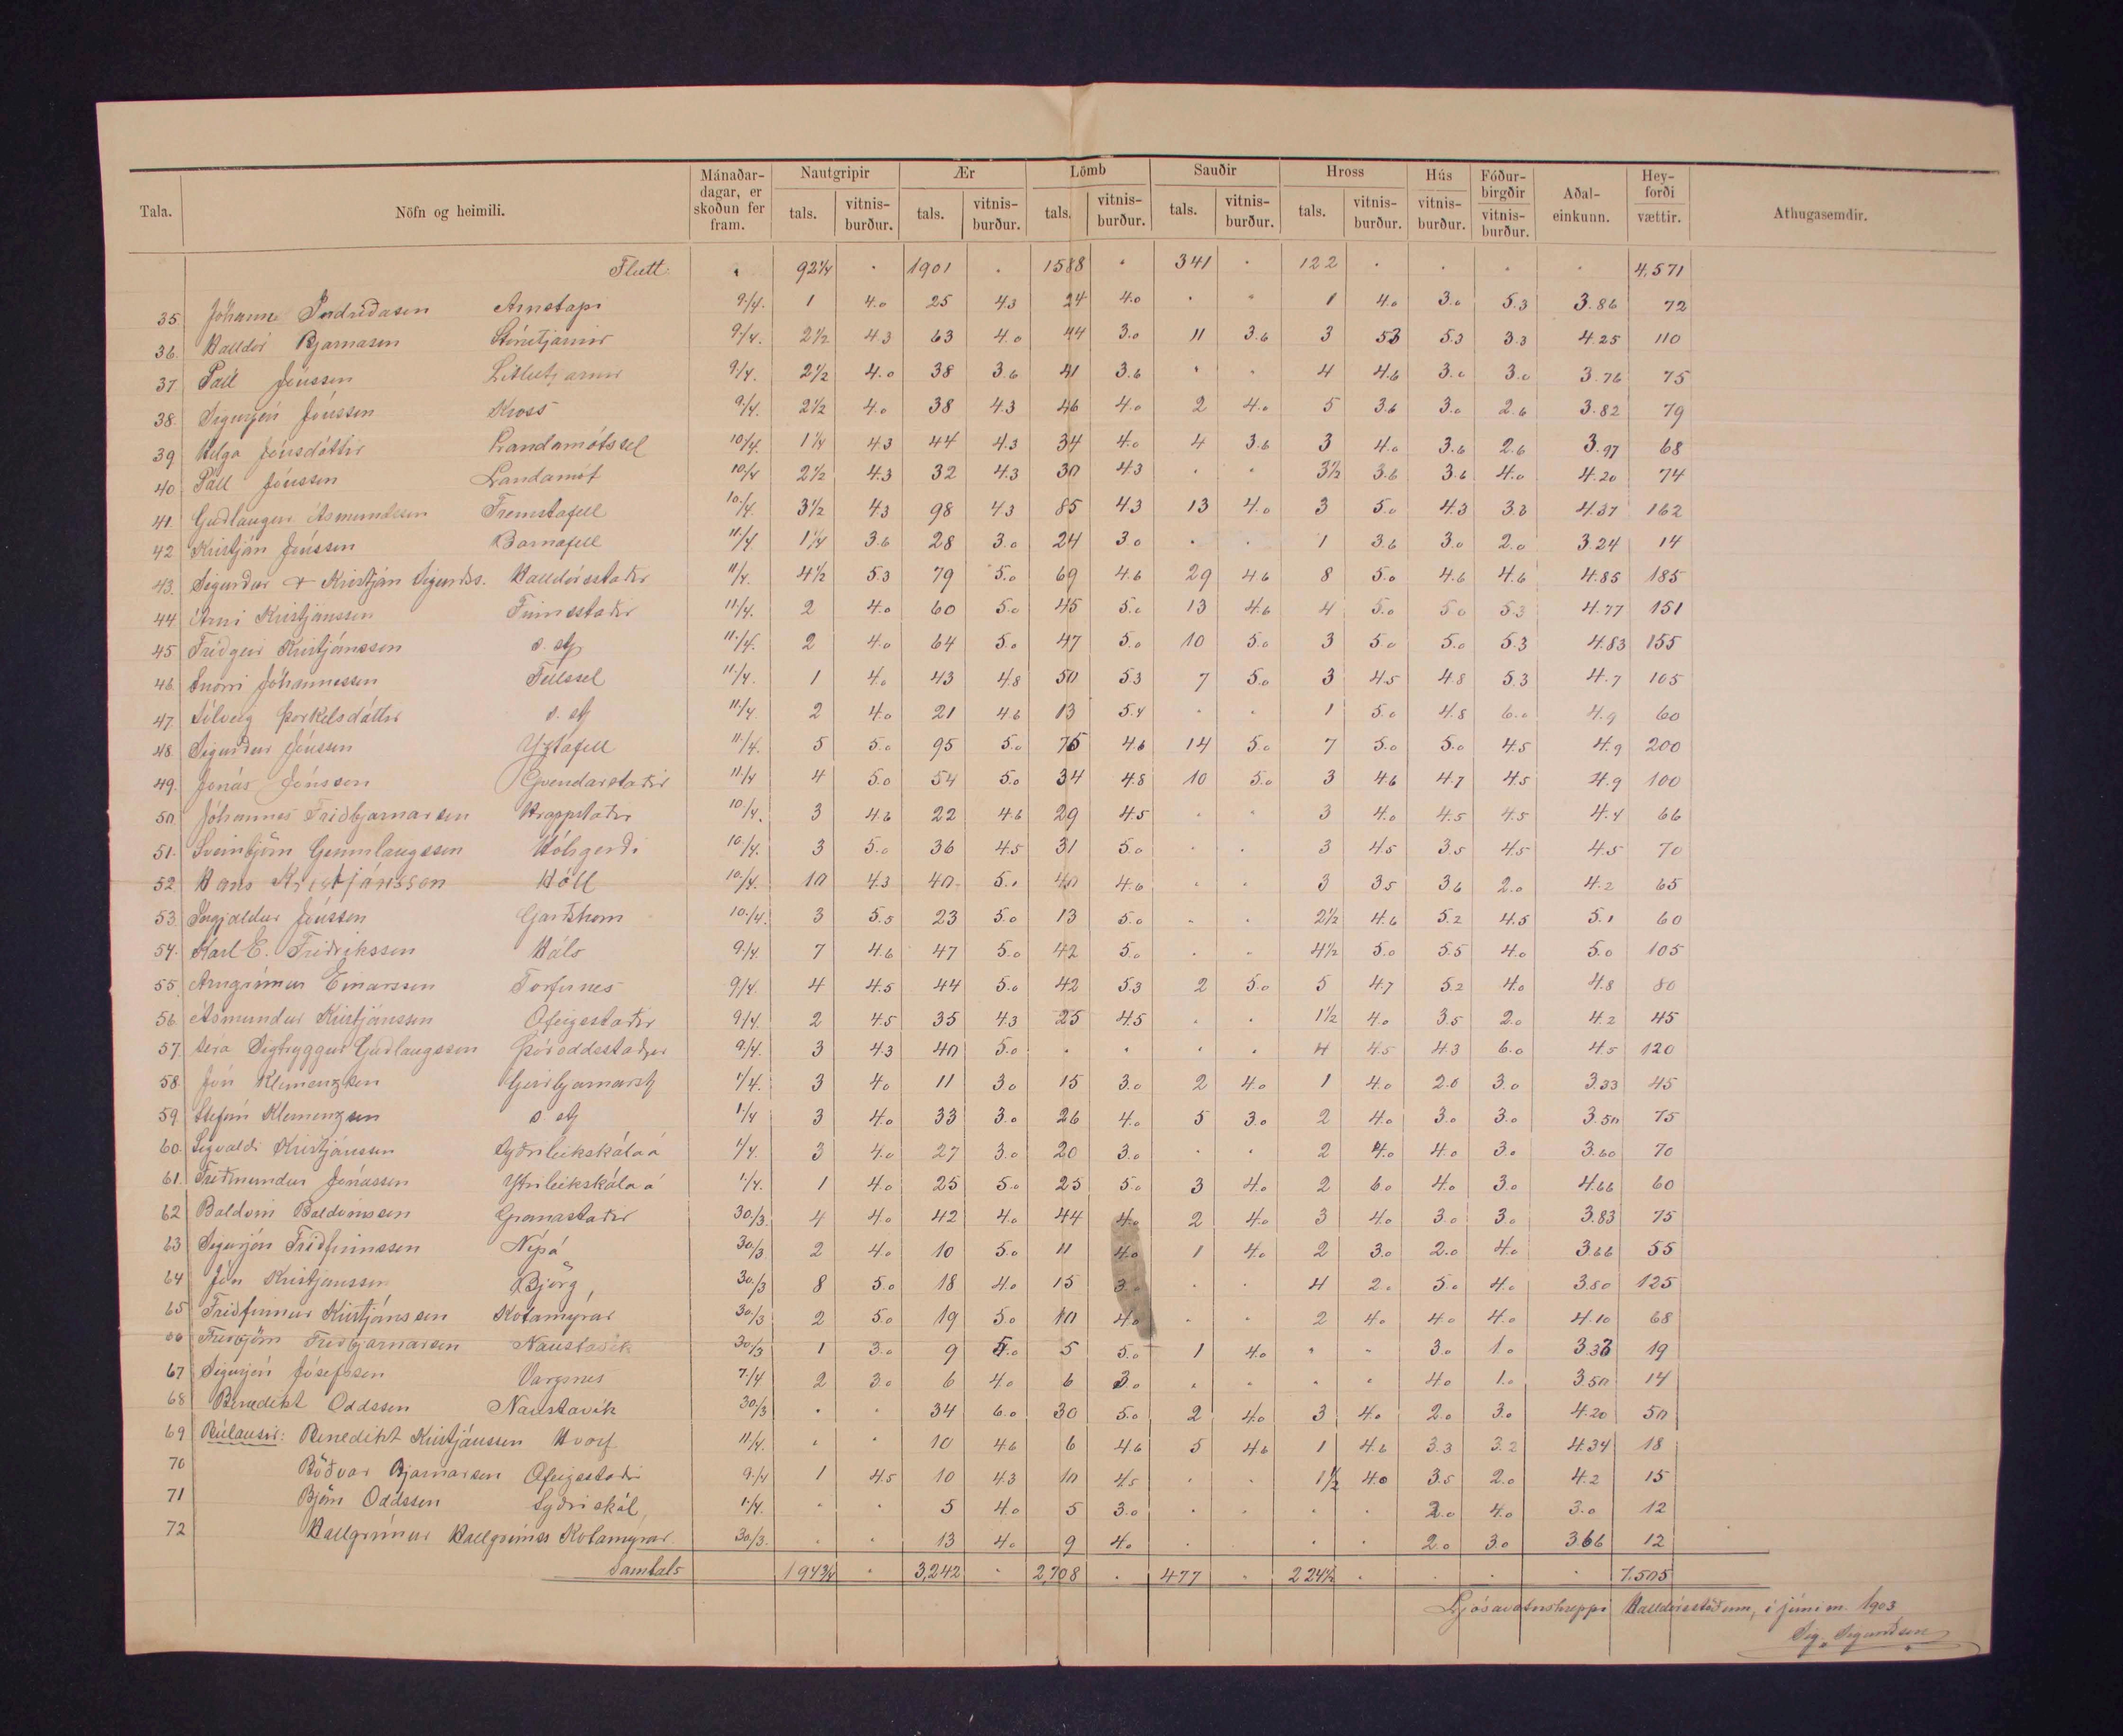 Tala. Nöfn og heimili. Mánaðardagar, er skoðun fer fram. Nautgripir tals. vitnisburður. Ær tals. vitnisburður. Lömb tals. vitnisburður. Sauðir tals. vitnisburður. Hross tals. vitnisburður. Hús vitnisburður. Fóðurbirgðir vitnisburður. Aðaleinkunn. Heyforði vættir. Athugasemdir.
Flutt: " 92¼ " 1901 " 1588 " 341 " 122 " " " " 4,571
35 Jóhann Indriðason Arnstapi 9/4. 1 4.0 25 4.3 24 4.0 " " 1 4.0 3.0 5.3 3.86 72
36. Halldór Bjarnason Stórutjarnir 9/4. 2½ 4.3 63 4.0 44 3.0 11 3.6 3 5.3 5.3 3.3 4.25 110
37 Páll Jónsson Litlutjarnir 9/4. 2½ 4.0 38 3.6 41 3.6 " " 4 4.6 3.0 3.0 3.76 75
38. Sigurjón Jónsson Kross 9/4. 2½ 4.0 38 4.3 46 4.0 2 4.0 5 3.6 3.0 2.6 3.82 79
39 Helga Jónsdóttir Landamótssel 10/4. 1¼ 4.3 44 4.3 34 4.0 4 3.6 3 4.0 3.6 2.6 3.97 68
40 Páll Jónsson Landamót 10/4 2½ 4.3 32 4.3 30 4.3 " " 3½ 3.6 3.6 4.0 4.20 74
41. Guðlaugur Ásmundsson Fremstafell 10/4. 3½ 4.3 98 4.3 85 4.3 13 4.0 3 5.0 4.3 3.3 4.37 162
42 Kristján Jónsson Barnafell 11/4 1¼ 3.6 28 3.0 24 3.0 " " 1 3.6 3.0 2.0 3.24 14
43. Sigurður & Kristján Sigurðss. Halldórsstaðir 11/4. 4½ 5.3 79 5.0 69 4.6 29 4.6 8 5.0 4.6 4.6 4.85 185
44 Árni Kristjánsson Finnsstaðir 11/4. 2 4.0 60 5.0 45 5.0 13 4.6 4 5.0 5.0 5.3 4.77 151
45 Friðgeir Kristjánsson s. st. 11/4. 2 4.0 64 5.0 47 5.0 10 5.0 3 5.0 5.0 5.3 4.83 155
46. Snorri Jóhannesson Fellssel 11/4. 1 4.0 43 4.8 50 5.3 7 5.0 3 4.5 4.8 5.3 4.7 105
47. Sólveig Þorkelsdóttir s. st. 11/4. 2 4.0 21 4.6 13 5.4 " " 1 5.0 4.8 6.0 4.9 60
48. Sigurður Jónsson Yztafell 11/4. 5 5.0 95 5.0 75 4.6 14 5.0 7 5.0 5.0 4.5 4.9 200
49. Jónas Jónsson Gvendarstaðir 11/4 4 5.0 54 5.0 34 4.8 10 5.0 3 4.6 4.7 4.5 4.9 100
50 Jóhannes Friðbjarnarson Hrappstaðir 10/4. 3 4.6 22 4.6 29 4.5 " " 3 4.0 4.5 4.5 4.4 66
51. Sveinbjörn Gunnlaugsson Hólsgerði 10/4. 3 5.0 36 4.5 31 5.0 " " 3 4.5 3.5 4.5 4.5 70
52 Hans Kristjánsson Hóll 10/4. 10 4.3 40 5.1 40 4.6 " " 3 3.5 3.6 2.0 4.2 65
53 Ingjaldur Jónsson Garðshorn 10/4. 3 5.5 23 5.0 13 5.0 " " 2½ 4.6 5.2 4.5 5.1 60
54. Karl E. Friðriksson Háls 9/4. 7 4.6 47 5.0 42 5.0 " " 4½ 5.0 5.5 4.0 5.0 105
55. Arngrímur Einarsson Torfunes 9/4. 4 4.5 44 5.0 42 5.3 2 5.0 5 4.7 5.2 4.0 4.8 80
56. Ásmundur Kristjánsson Ófeigsstaðir 9/4. 2 4.5 35 4.3 25 4.5 " " 1½ 4.0 3.5 2.0 4.2 45
57. séra Sigtryggur Guðlaugsson Þóroddsstaður 9/4. 3 4.3 40 5.0 " " " " 4 4.5 4.3 6.0 4.5 120
58. Jón Klemenzson Geirbjarnarst. 1/4. 3 4.0 11 3.0 15 3.0 2 4.0 1 4.0 2.0 3.0 3.33 45
59 Stefán Klemenzson s. st. 1/4 3 4.0 33 3.0 26 4.0 5 3.0 2 4.0 3.0 3.0 3.50 75
60. Sigvaldi Kristjánsson Syðrileikskálaá 1/4. 3 4.0 27 3.0 20 3.0 " " 2 4.0 4.0 3.0 3.60 70
61. Friðmundur Jónasson Ytrileikskálaá 1/4. 1 4.0 25 5.0 25 5.0 3 4.0 2 6.0 4.0 3.0 4.66 60
62 Baldvin Baldvinsson Granastaðir 30/3. 4 4.0 42 4.0 44 4.0 2 4.0 3 4.0 3.0 3.0 3.83 75
63 Sigurjón Friðfinnsson Nípá 30/3. 2 4.0 10 5.0 11 4.0 1 4.0 2 3.0 2.0 4.0 3.66 55
64 Jón Kristjánsson Björg 30/3 8 5.0 18 4.0 15 3.0 " " 4 2.0 5.0 4.0 3.80 125
65 Friðfinnur Kristjánsson Kotamýrar 30/3 2 5.0 19 5.0 10 4.0 " " 2 4.0 4.0 4.0 4.10 68
66 Friðbjörn Friðbjarnarson Naustavík 30/3 1 3.0 9 5.0 5 5.0 1 4.0 " " 3.0 1.0 3.33 19
67 Sigurjón Jósefsson Vargsnes 7/4 2 3.0 6 4.0 6 3.0 " " " " 4.0 1.0 3.50 14
68 Benedikt Oddsson Naustavík 30/3 " " 34 6.0 30 5.0 2 4.0 3 4.0 2.0 3.0 4.20 50
69 Búlausir: Benedikt Kristjánsson Hvarf 11/4. " " 10 4.6 6 4.6 5 4.6 1 4.6 3.3 3.2 4.34 18
70 Böðvar Bjarnarson Ófeigsstaðir 9/4 1 4.5 10 4.3 10 4.5 " " 1½ 4.0 3.5 2.0 4.2 15
71 Björn Oddsson Syðriskál 1/4. " " 5 4.0 5 3.0 " " " " 2.0 4.0 3.0 12
72 Hallgrímur Hallgrímss Kotamýrar 30/3. " " 13 4.0 9 4.0 " " " " 2.0 3.0 3.66 12
Samtals 194¾ " 3,242 " 2,708 " 477 " 224½ " " " " 7.505
Ljósavatnshreppi Halldórsstöðum, í júním. 1903
Sig. Sigurðsson